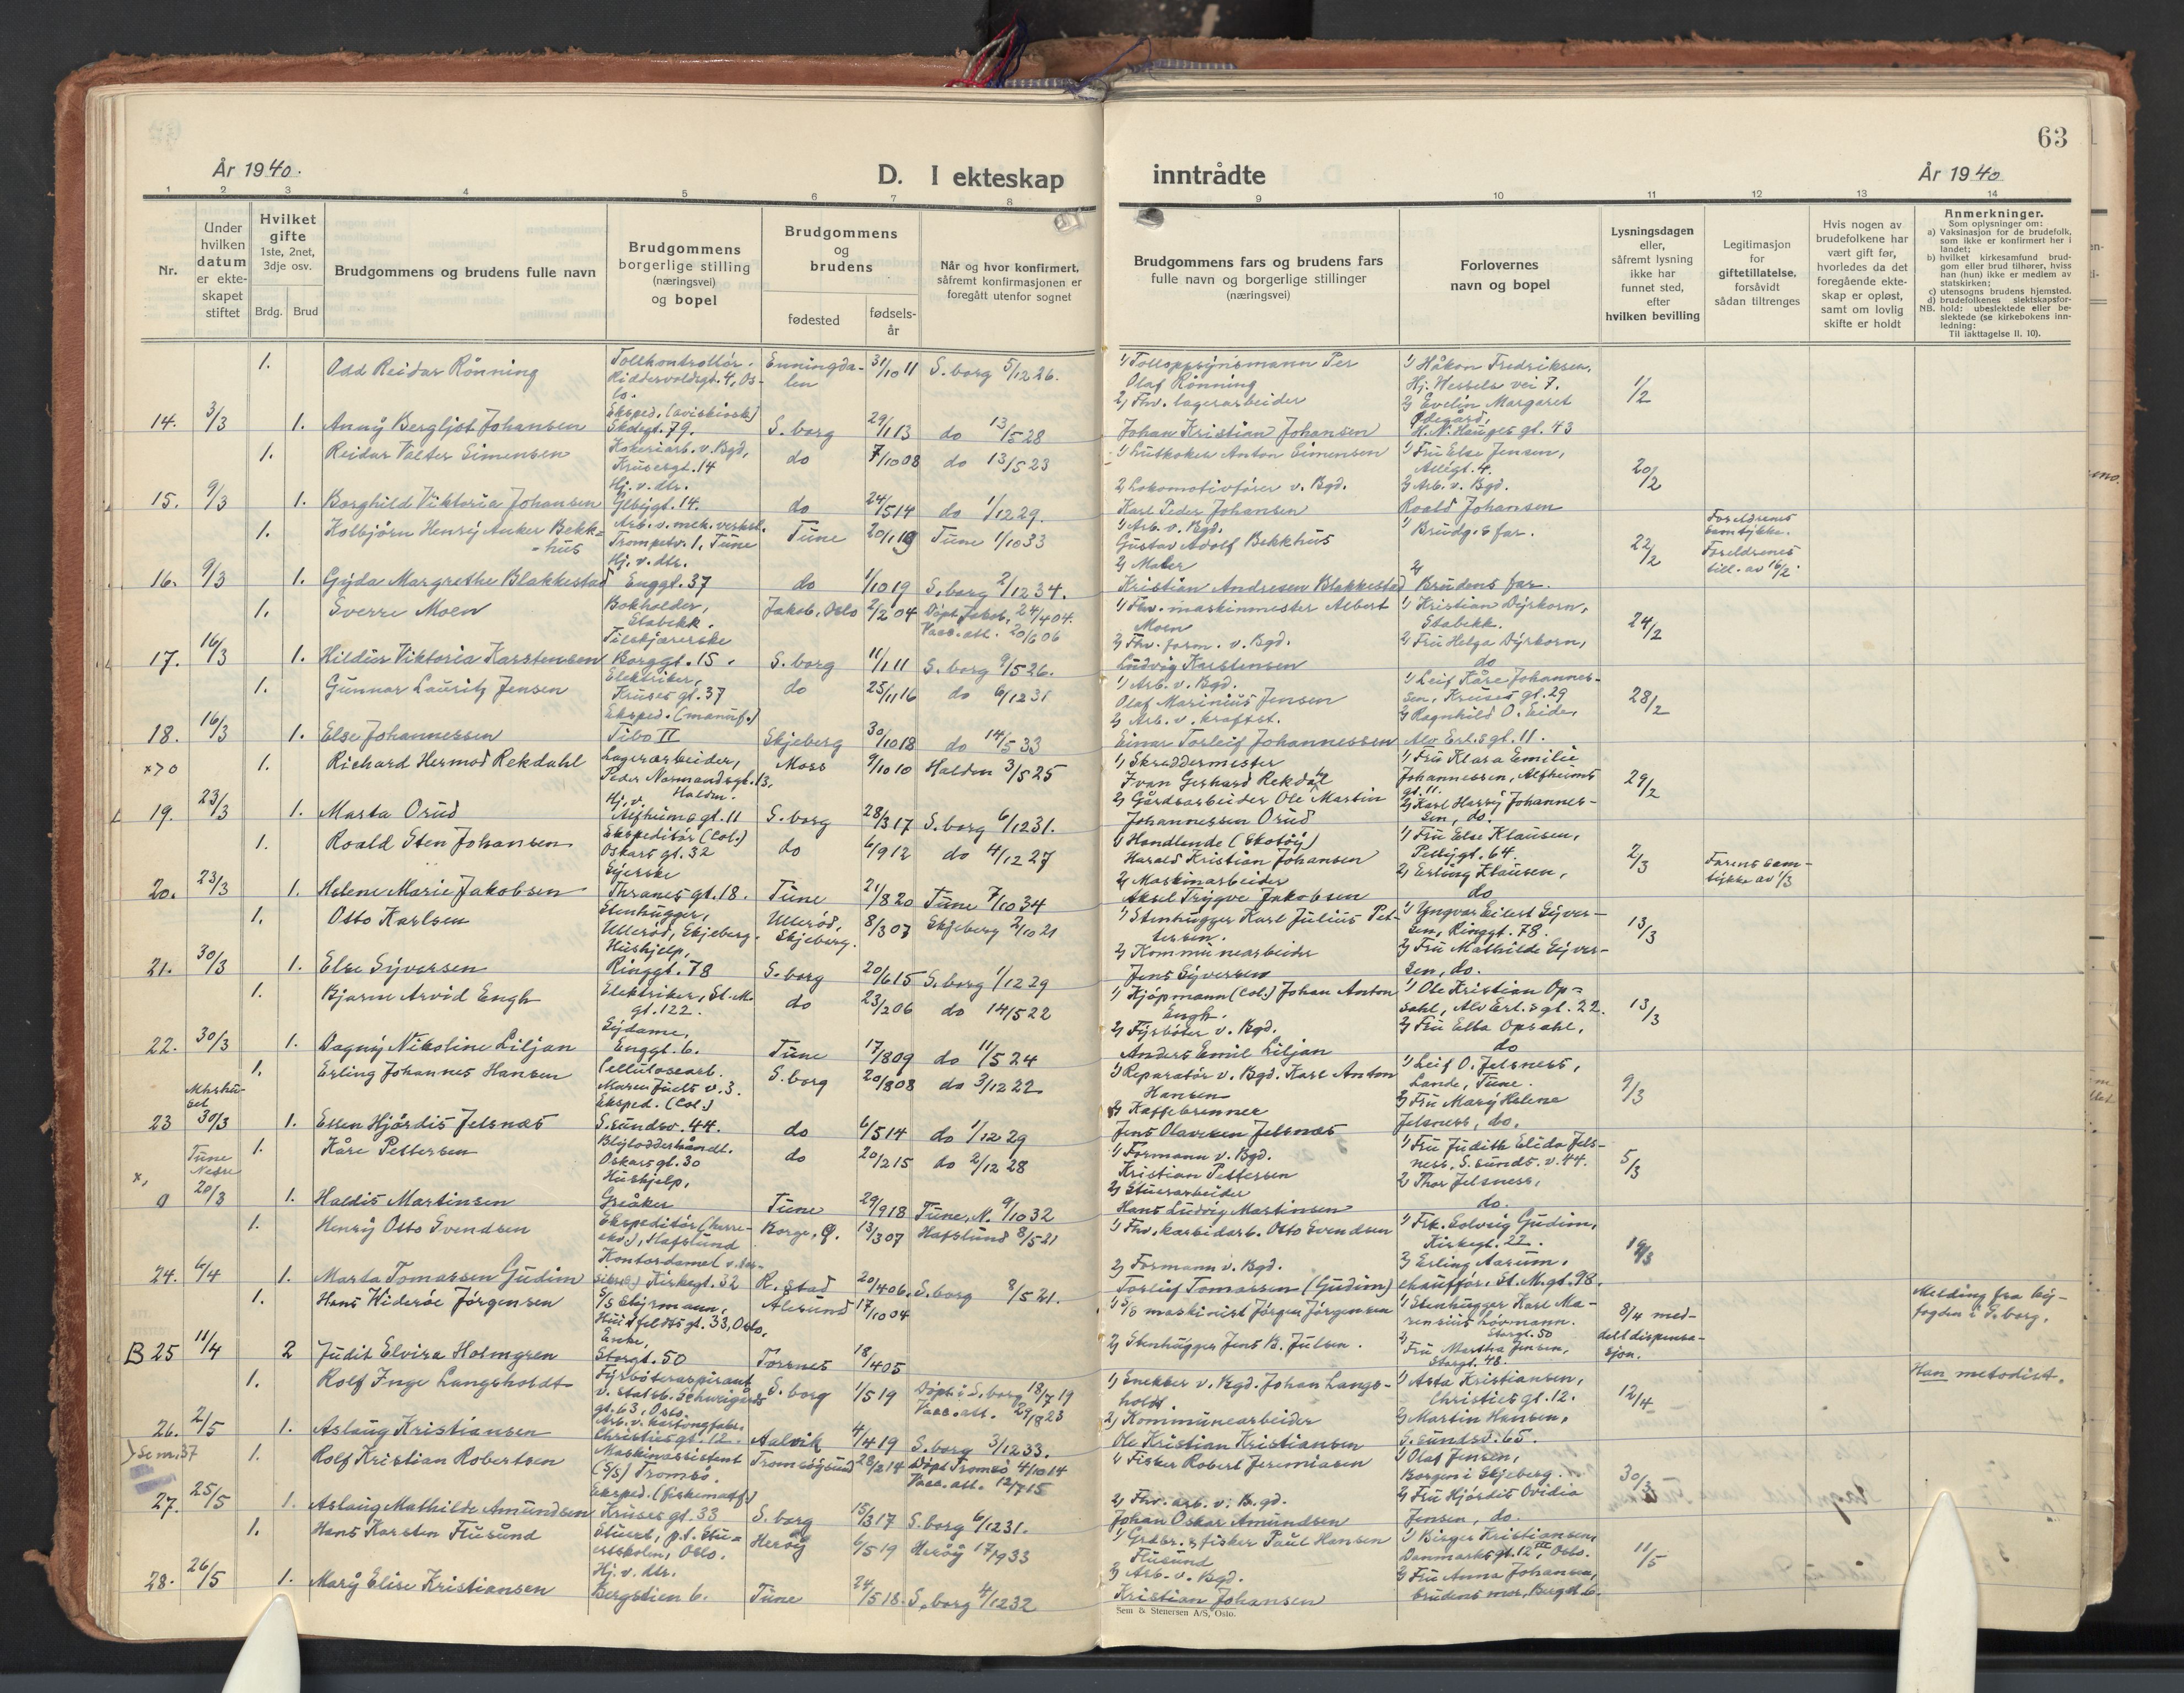 63
År 1940.
D. I ekteskap
inntrådte
År 1940
1 2 3 4 5 6 7 8 9 10 11 12 13 14
Nr.
Under hvilken datum er ekteskapet stiftet
Hvilket gifte 1ste, 2net, 3dje osv.
Brdg. Brud
Brudgommens og brudens fulle navn
Brudgommens borgerlige stilling (næringsvei) og bopel
Brudgommens og brudens
fødested
fødselsår
Når og hvor konfirmert, såfremt konfirmasjonen er foregått utenfor sognet
Brudgommens fars og brudens fars fulle navn og borgerlige stillinger (næringsvei)
Forlovernes navn og bopel
Lysningsdagen eller, såfremt lysning ikke har funnet sted, efter hvilken bevilling
Legitimasjon for giftetillatelse, forsåvidt sådan tiltrenges
Hvis nogen av brudefolkene har vært gift før, hvorledes da det foregående ekteskap er opløst, samt om lovlig skifte er holdt
Anmerkninger.
Som oplysninger om:
a) Vaksinasjon for de brudefolk, som ikke er konfirmert her i landet;
b) hvilket kirkesamfund brudgom eller brud tilhører, hviss han (hun) ikke er medlem av statskirken;
c) utensogns brudens hjemsted.
d) brudefolkenes slektskapsforhold: ubeslektede eller beslektede (se kirkebokens innledning:
NB. Til iakttagelse II. 10).
1. Odd Reidar Rönning Tollkontrollör. Riddervoldsgt. 4, Oslo. Enningdalen 31/10 11 S. borg 5/12 26. 1) Tolloppsynsmann Per Olaf Rönning 1) Håkon Fredriksen, Hj. Wessels vei 7. 1/2
14. 3/3 1. Anny Bergljot Johansen Eksped. (aviskiosk) Skolegt. 79. S. borg 29/1 13 do 13/5 28 2) Fhv. lagerarbeider Johan Kristian Johansen 2) Evelin Margaret Ödegård, H. N. Hauges gt. 43
1. Reidar Valter Simensen Kokeriarb. v. Bgd, Krusesgt. 14 do 7/10 08 do 13/5 23 1) Lutkoker Anton Simensen 1) Fru Else Jensen, Allégt. 4. 20/2
15. 9/3 1. Borghild Viktoria Johansen Hj. v. dtr. Glbygt. 14. do 24/5 14 do 1/12 29. 2) Lokomotivförer v. Bgd. Karl Peder Johansen 2) Arb. v. Bgd. Roald Johansen
1. Kolbjörn Henry Anker Bekkhus Arb. v. mek. verkst. Trompetv. 1, Tune Tune 20/1 19 Tune 1/10 33 1) Arb. v. Bgd. Gustav Adolf Bekkhus 1) Brudg.s far. 22/2 Foreldrenes samtykke.
16. 9/3 1. Gyda Margrethe Blakkestad Hj. v. dtr. Enggt. 37 do 1/10 19 S. borg 2/12 34. 2) Maler Kristian Andresen Blakkestad 2) Brudens far. Foreldrenes till. av 16/2.
1. Sverre Moen Bokholder, Stabekk. Jakob, Oslo 2/2 04 Döpt Jakob, 24/4 04. Vacc. att. 20/6 06 1) Fhv. maskinmester Albert Moen 1) Kristian Dyrkorn, Stabekk. 24/2
17. 16/3 1. Hildur Viktoria Karstensen Tilskjærerske Borggt. 15. S. borg 11/1 11 S. borg 9/5 26. 2) Fhv. form. v. Bgd. Ludvig Karstensen 2) Fru Helga Dyrkorn, do
1. Gunnar Lauritz Jensen Elektriker, Kruses gt. 37 do 25/11 16 do 6/12 31 1) Arb. v. Bgd. Olaf Marinius Jensen 1) Leif Kåre Johannessen, Kruses gt. 29 28/2
18. 16/3 1. Else Johannessen Eksped. (manuf.) Tibo II Skjeberg 30/10 18 do 14/5 33 2) Arb. v. kraftst. Einar Torleif Johannessen 2) Ragnhild O. Eide, Alv Erl.s gt. 11.
1. Richard Hermod Rekdahl Lagerarbeider, Peder Normandsgt. 13, Halden. Moss 9/10 10 Halden 3/5 25 1) Skreddermester Ivan Gerhard Rekdal 1) Fru Klara Emilie Johannessen, Alfheims gt. 11. 29/2
19. 23/3 1. Marta Orud Hj. v. Alfheims gt. 11 S. borg 28/3 17 S. borg 6/12 31. 2) Gårdsarbeider Ole Martin Johannessen Orud 2) Karl Harry Johannessen, do.
1. Roald Sten Johansen Ekspeditör (Col.) Oskars gt. 32 do 6/9 12 do 4/12 27 1) Handlende (Skotöy) Harald Kristian Johansen 1) Fru Else Klausen, Pellygt. 64. 2/3 Farens samtykke av 1/3
20. 23/3 1. Helene Marie Jakobsen Syerske Thranes gt. 18. Tune 21/8 20 Tune 7/10 34 2) Maskinarbeider Aksel Trygve Jakobsen 2) Erling Klausen, do
1. Otto Karlsen Stenhugger, Ullerød, Skjeberg. Ullerød, Skjeberg. 8/3 07 Skjeberg 2/10 21 1) Stenhugger Karl Julius Pettersen. 1) Yngvar Eilert Syversen, Ringgt. 78. 13/3
21. 30/3 1. Else Syversen Hushjelp, Ringgt. 78 S. borg 20/6 15 S. borg 1/12 29 2) Kommunearbeider Jens Syversen 2) Fru Mathilde Syversen, do.
1. Bjarne Arvid Engh Elektriker, St. M. gt. 122. do 23/2 06 do 14/5 22 1) Kjöpmann (Col.) Johan Anton Engh. 1) Ole Kristian Opsahl, Alv Erl.s gt. 22. 13/3
22. 30/3 1. Dagny Nikoline Liljan Sydame, Enggt. 6. Tune 17/8 09 do 11/5 24 2) Fyrböter v. Bgd. Anders Emil Liljan 2) Fru Elba Opsahl, do
1. Erling Johannes Hansen Cellulosearb. Maren Juels v. 3. S. borg 20/8 08 do 3/12 22 1) Reparatör v. Bgd. Karl Anton Hansen 1) Leif O. Jelsness, Lande, Tune. 9/3
23 30/3 1. Essen Hjördis Jelsnæs Eksped. (Col.) S. sundsv. 44. do 6/5 14 do 1/12 29 2) Kaffebrenner Jens Olavesen Jelsnæs 2) Fru Mary Helene Jelsness, do.
Tune Nedre 1. Kåre Pettersen Blylodderhåndl. Oskarsgt. 30 do 20/2 15 do 2/12 28 1) Formann v. Bgd. Kristian Pettersen 1) Fru Judith Elida Jelsness, S. sunds. v. 44. 5/3
0 20/3 1. Haldis Martinsen Hushjelp, Greåker Tune 29/9 18 Tune, N. 9/10 32 2) Stuerarbeider Hans Ludvig Martinsen 2) Thor Jelsness, do.
1. Henry Otto Svendsen Ekspeditör (herreekv.), Hafslund Borge, Ø. 13/3 07 Hafslund 8/5 21 1) Fhv. karbidarb. Otto Svendsen 1) Frk. Solveig Gudim, Kirkegt. 22. 19/3
24. 6/4 1. Marta Tomassen Gudim Kirkegt. 32 R. stad 20/4 06. S. borg 8/5 21. 2) Formann v. Bgd. Torleif Tomassen (Gudim) 2) Erling Aarum, chaufför, St. M. gt. 98.
1. Hans Wideröe Jörgensen S/S Styrmann, Huitfeldts gt. 33, Oslo. Ålesund 17/10 04 1) S/S maskinist Jörgen Jörgensen 1) Stenhugger Karl Marensius Lövmann. Storgt. 50 8/4 meddelt dispensasjon. Melding fra byfogden i S. borg.
B 25 11/4 2 Judit Elvira Holmgren Enke, Storgt. 50 Torsnes 18/4 05 2) Stenhugger Jens B. Julsen. 2) Fru Martha Jensen, Storgt. 48.
1. Rolf Inge Langsholdt Fyrböteraspirant v. statsb. Schweigårds gt. 63, Oslo. S. borg 1/5 19 Döpt i S. borg 18/7 19 Vacc. att. 29/8 23 1) Snekker v. Bgd. Johan Langsholdt. 1) Asta Kristiansen, Christies gt. 12. 12/4 Han metodist.
26. 2/5 1. Aslaug Kristiansen Arb. v. kartongfabr. Christies gt. 12. Aalvik 4/4 19 S. borg 3/12 33. 2) Kommunearbeider Ole Kristian Kristiansen 2) Martin Hansen, S. sundsv. 65.
Se nr. 37 1. Rolf Kristian Robertsen Maskinassistent (S/S) Tromsö. Tromsöysund 28/2 14 Döpt Tromsö 4/10 14 Vacc. att. 12/7 15 1) Fisker Robert Jeremiasen 1) Olaf Jensen, Borgen i Skjeberg. 30/3
27. 25/5 1. Aslaug Mathilde Amundsen Eksped. (fiskematf.) Kruses gt. 33 S. borg 15/3 17 S. borg 6/12 31. 2) Fhv. arb. v. B.gd. Johan Oskar Amundsen 2) Fru Hjördis Ovidia Jensen, do.
1. Hans Karsten Flusund Stuert, p.t. Stuertskolen, Oslo. Heröy 6/5 19 Heröy 17/9 33 1) Grdbr. & fisker Paul Hansen Flusund 1) Birger Kristiansen, Danmarks gt. 12 III, Oslo. 11/5
28. 26/5 1. Mary Elise Kristiansen Hj. v. dtr. Bergstien 6. Tune 24/5 18. S. borg 4/12 32 2) Arb. v. Bgd. Kristian Johansen 2) Fru Anna Johansen, brudens mor, Bergst. 6.
Sem & Stenersen A/S, Oslo.